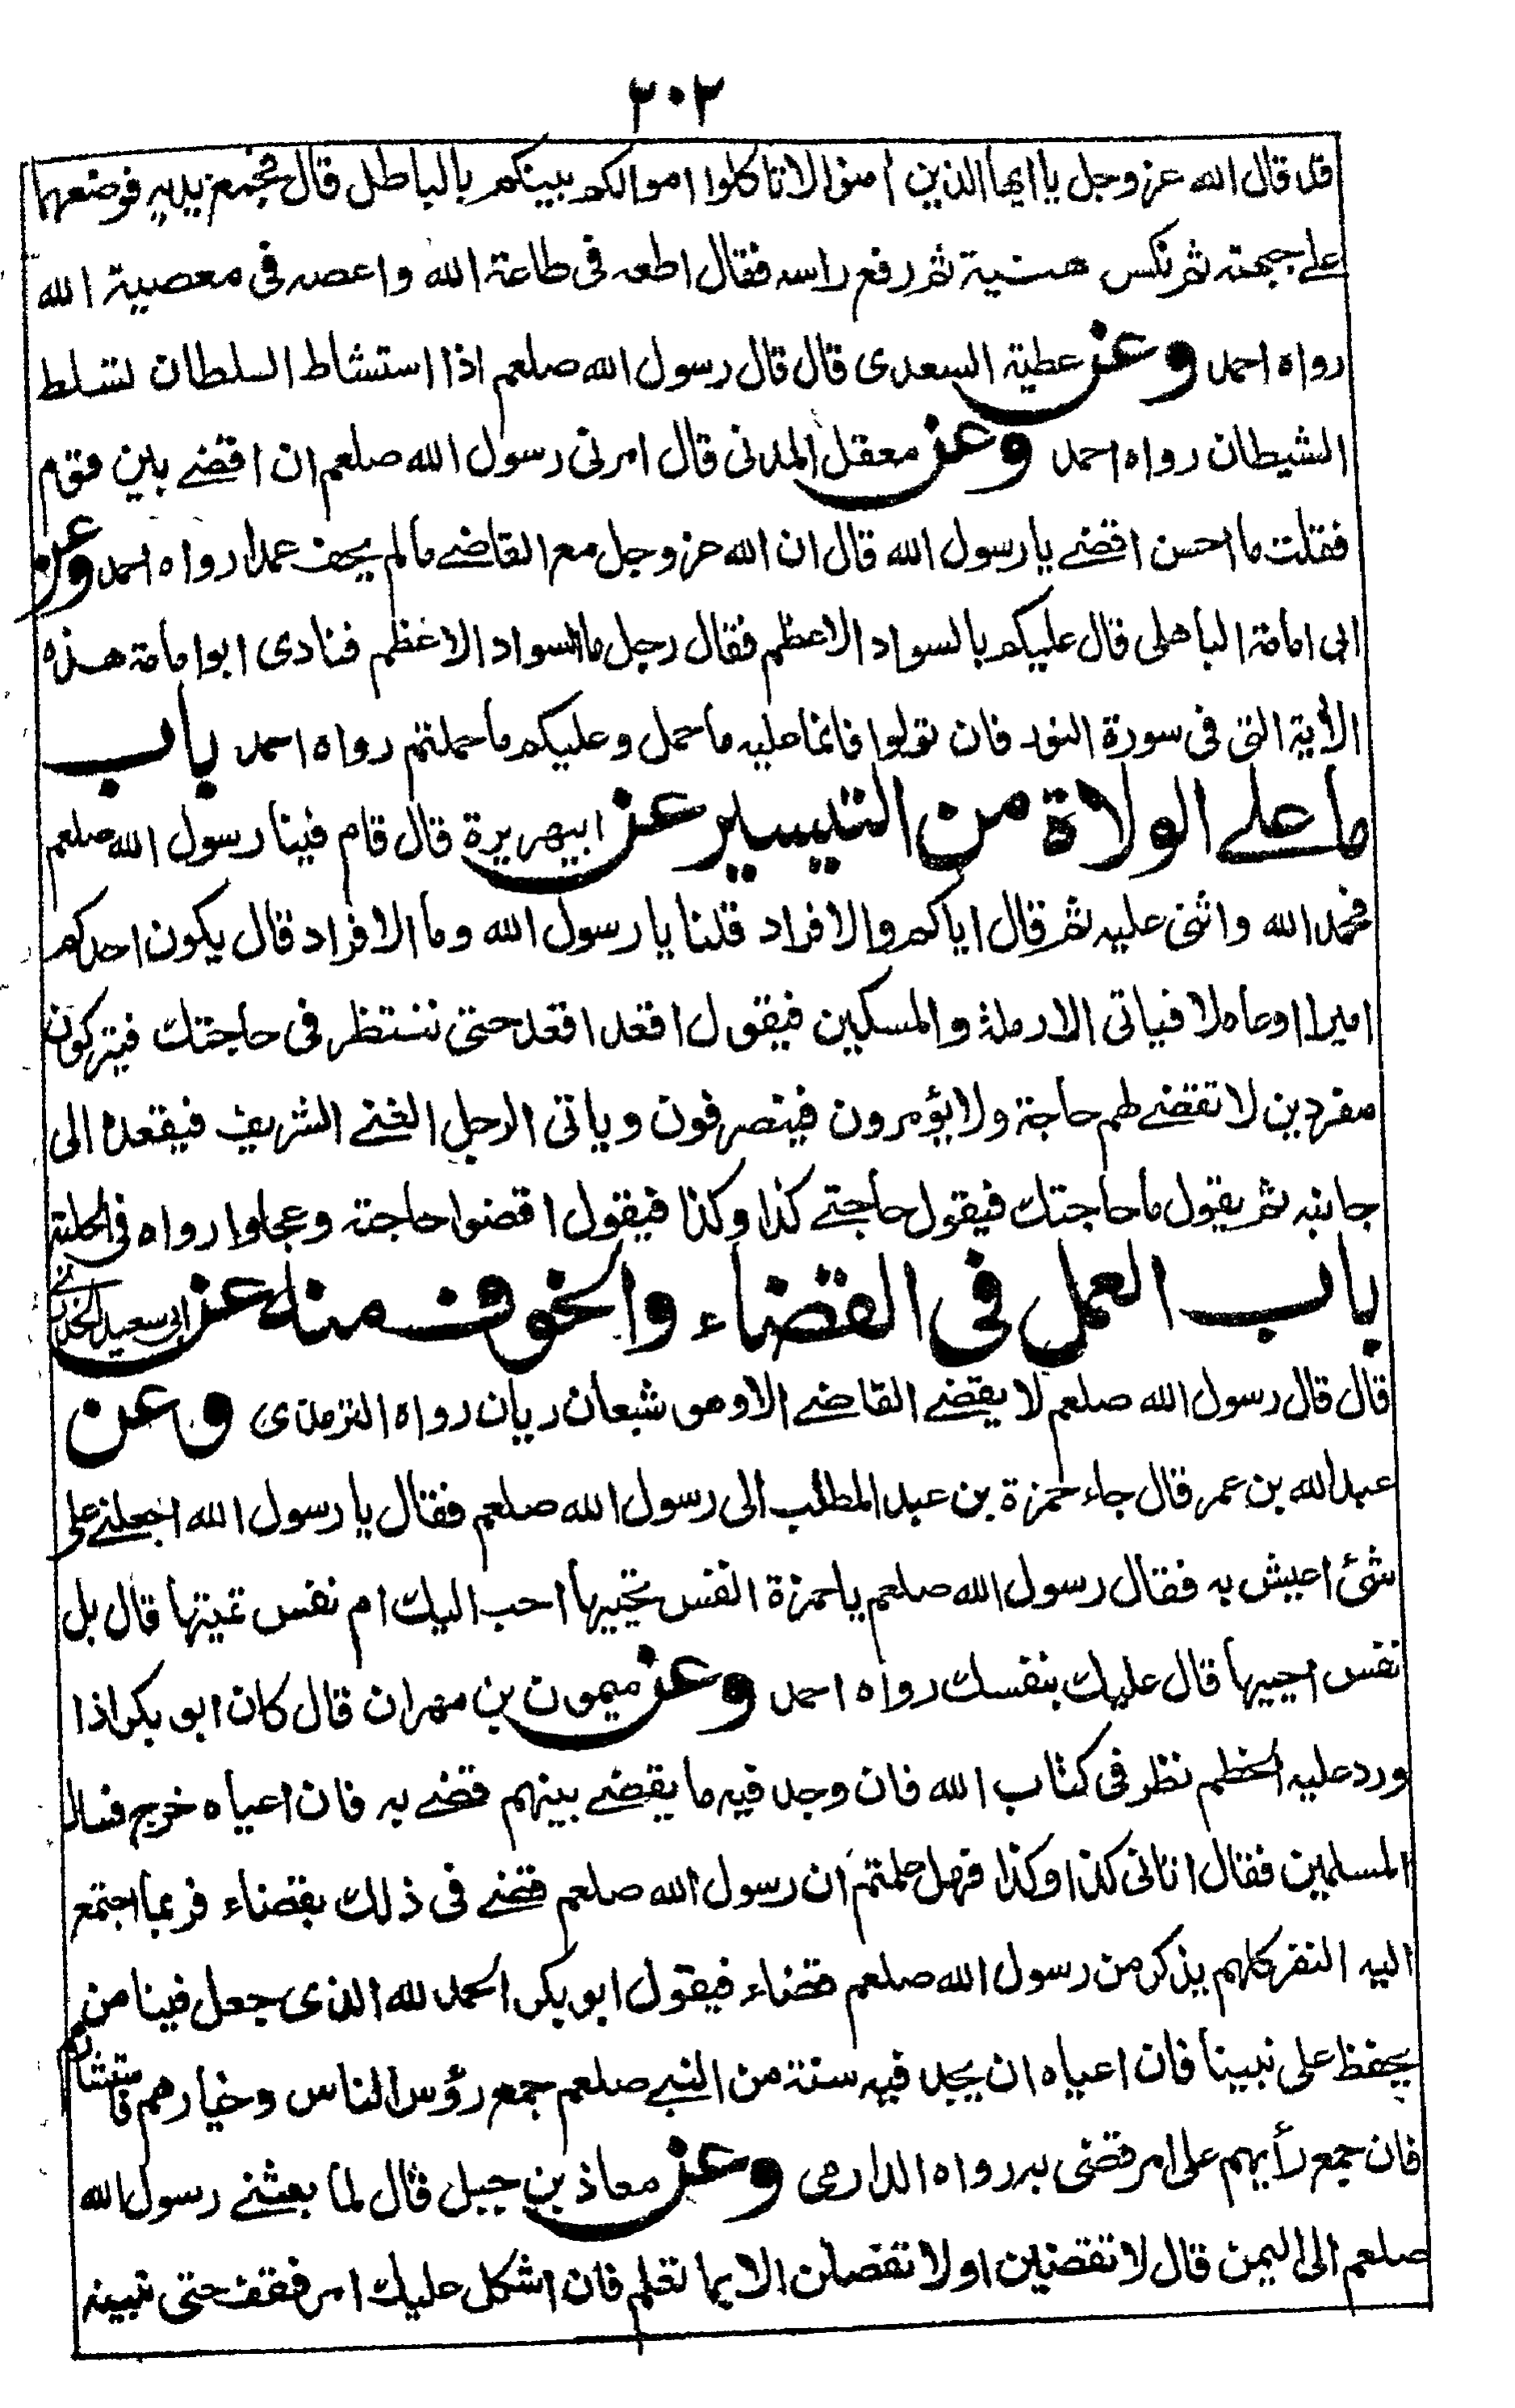 ٣٠٢
قد قال الله عزوجل يا ايها الذين امنوا لا تاكلوا اموالكم بينكم بالباطل قال فجمع يديه فوضعهما
على جبهته ثم نكس هنية ثم رفع راسه فقال اطعه فى طاعة الله واعصه فى معصية الله
رواه احمد وعن عطية السعدى قال قال رسول الله صلعم اذا استشاط السلطان تسلط
الشيطان رواه احمد وعن معقل المدنى قال امرنى رسول الله صلعم ان اقضے بين قوم
فقلت ما احسن اقضے يا رسول الله قال ان الله عزوجل مع القاضے مالم يحف عمدا رواه احمد وعن
ابى امامة الباهلى قال عليكم بالسواد الاعظم فقال رجل ما السواد الاعظم فنادى ابو امامة هذه
الاية التى فى سورة النور فان تولوا فانما عليه ما حمل وعليكم ما حملتم رواه احمد باب
ما على الولاة من التيسير عن ابيهريرة قال قام فينا رسول الله صلعم
فحمد الله واثنى عليه ثم قال اياكم والافراد قلنا يا رسول الله وما الافراد قال يكون احدكم
اميرا او عاملا فياتى الارملة والمسكين فيقول اقعد اقعد حتى ننتظر فى حاجتك فيتركون
مفردين لا تقضے لهم حاجة ولا يؤمرون فينصرفون وياتى الرجل الغنے الشريف فيقعده الى
جانبه ثم يقول ما حاجتك فيقول حاجتے كذا وكذا فيقول اقضوا حاجته وعجلوا رواه فى الحلية
باب العمل فى القضاء والخوف منه عن ابى سعيد الخدرى
قال قال رسول الله صلعم لا يقضے القاضے الا وهو شبعان ريان رواه الترمذى وعن
عبد الله بن عمر قال جاء حمزة بن عبد المطلب الى رسول الله صلعم فقال يا رسول الله اجعلنے على
شئ اعيش به فقال رسول الله صلعم يا حمزة انفس تحييها احب اليك ام نفس تميتها قال بل
نفس احييها قال عليك بنفسك رواه احمد وعن ميمون بن مهران قال كان ابو بكر اذا
ورد عليه الخظم نظر فى كتاب الله فان وجد فيه ما يقضے بينهم قضے به فان اعياه خرج فسال
المسلمين فقال اتانى كذا وكذا فهل علمتم ان رسول الله صلعم قضے فى ذلك بقضاء فربما اجتمع
اليه النفر كلهم يذكر من رسول الله صلعم قضاء فيقول ابو بكر الحمد لله الذى جعل فينا من
يحفظ على نبينا فان اعياه ان يجد فيه سنة من النبے صلعم جمع رؤس الناس وخيارهم فاستشارهم
فان جمع رأيهم على امر قضى به رواه الدارمى وعن معاذ بن جبل قال لما بعثنے رسول الله
صلعم الى اليمن قال لا تقضين او لا تفصلن الا بما تعلم فان اشكل عليك امر فقف حتى تبينه